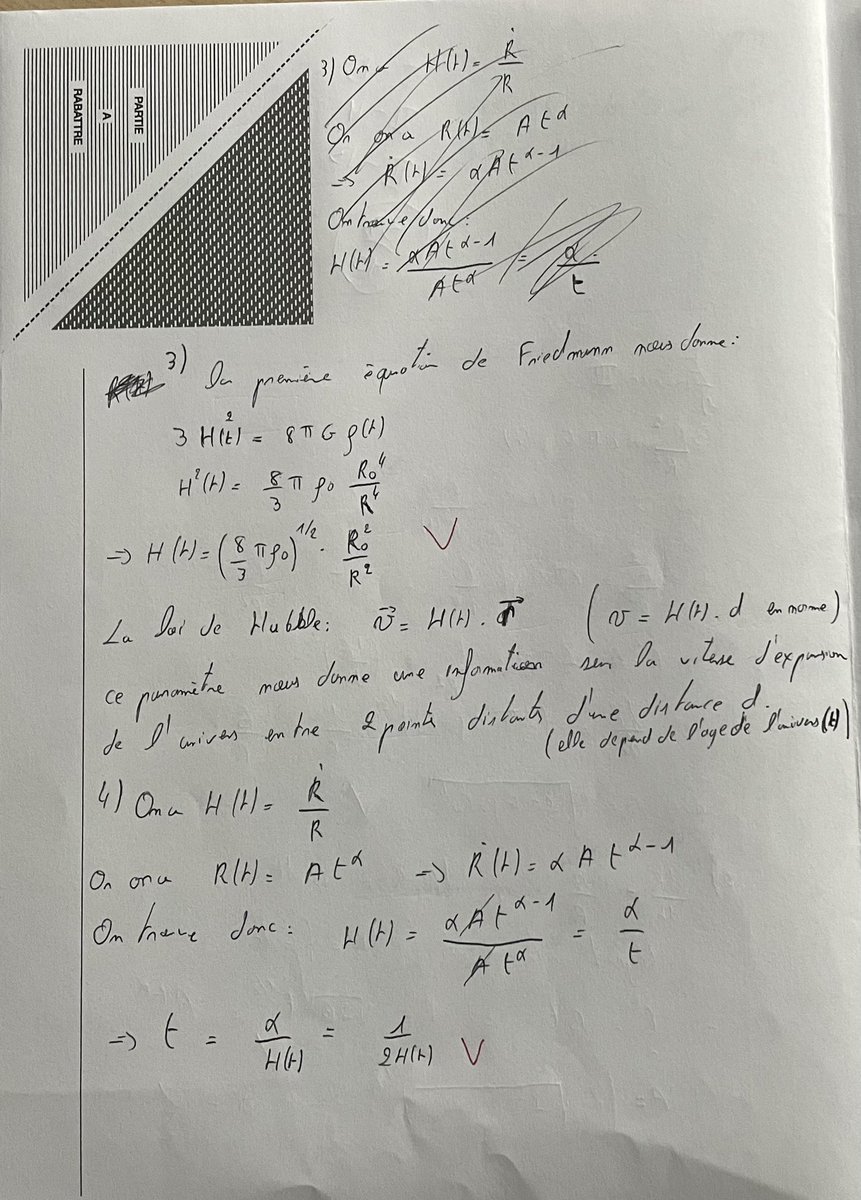 PARTIE
A
RABATTRE
3) On a H(t) = Ṙ/R
Or on a R(t) = A t^α
=> Ṙ(t) = αA t^α-1
On trouve donc:
H(t) = αA t^α-1 / A t^α = α/t
3) La première équation de Friedmann nous donne:
3 H(t)² = 8πG ρ(t)
H²(t) = 8/3 π ρ0 R0⁴/R⁴
=> H(t) = (8/3 πρ0)^1/2 · R0²/R²
V
La loi de Hubble: v⃗ = H(t) . r⃗ (v = H(t). d en norme)
ce paramètre nous donne une information sur la vitesse d'expansion
de l'univers entre 2 points distants d'une distance d.
(elle dépend de l'age de l'univers (t)
4) On a H(t) = Ṙ/R
Or on a R(t) = A t^α => Ṙ(t) = α A t^α-1
On trouve donc: H(t) = αA t^α-1 / A t^α = α/t
=> t = α/H(t) = 1/2H(t) V